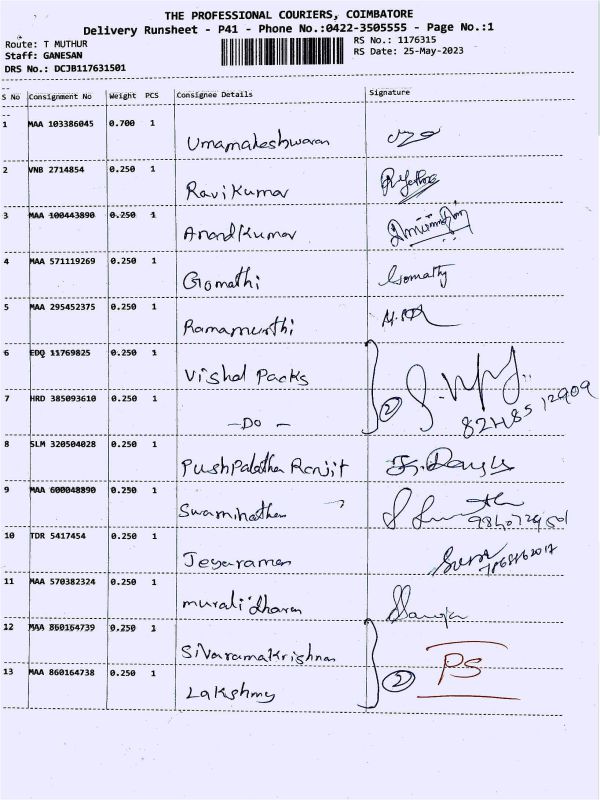 THE PROFESSIONAL COURIERS, COIMBATORE
Delivery Runsheet - P41 - Phone No.:0422-3505555 - Page No.:1
Route: T MUTHUR
RS No.: 1176315
Staff: GANESAN
RS Date: 25-May-2023
DRS No.: DCJB117631501
S No Consignment No Weight PCS Consignee Details Signature
1 MAA 103386045 0.700 1 Umamaheshwaran
2 VNB 2714854 0.250 1 Ravi Kumar
3 MAA 100443890 0.250 1 Anand Kumar
4 MAA 571119269 0.250 1 Gomathi Gomathy
5 MAA 295452375 0.250 1 Ramamurthi
6 EDQ 11769825 0.250 1 Vishal Packs
7 HRD 385093610 0.250 1 - Do - 2
8 SLM 320504028 0.250 1 Pushpalatha Ranjit
9 MAA 600048890 0.250 1 Swaminathan
10 TDR 5417454 0.250 1 Jeyaraman
11 MAA 570382324 0.250 1 muralidharan
12 MAA 860164739 0.250 1 Sivaramakrishnan
13 MAA 860164738 0.250 1 Lakshmy 2 PS